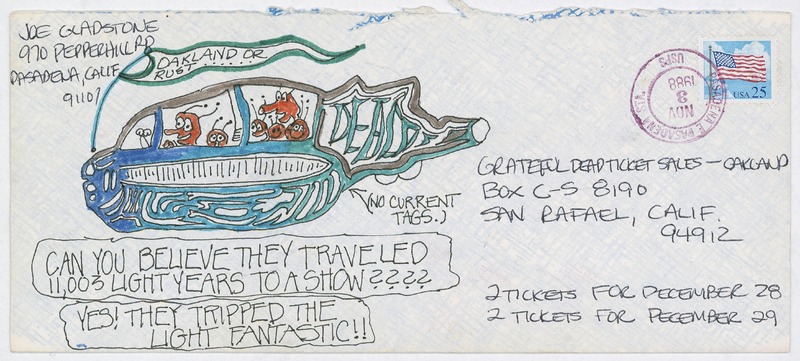 JOE GLADSTONE
970 PEPPERHILL RD
PASADENA, CALIF
91107
OAKLAND OR
RUST
DEAD
(NO CURRENT
TAGS.)
CAN YOU BELIEVE THEY TRAVELED
11,003 LIGHT YEARS TO A SHOW????
YES! THEY TRIPPED THE
LIGHT FANTASTIC!!
USA 25
PASADENA
NOV
3
1988
USPS
GRATEFUL DEAD TICKET SALES — OAKLAND
BOX C-S 8190
SAN RAFAEL, CALIF.
94912
2 TICKETS FOR DECEMBER 28
2 TICKETS FOR DECEMBER 29